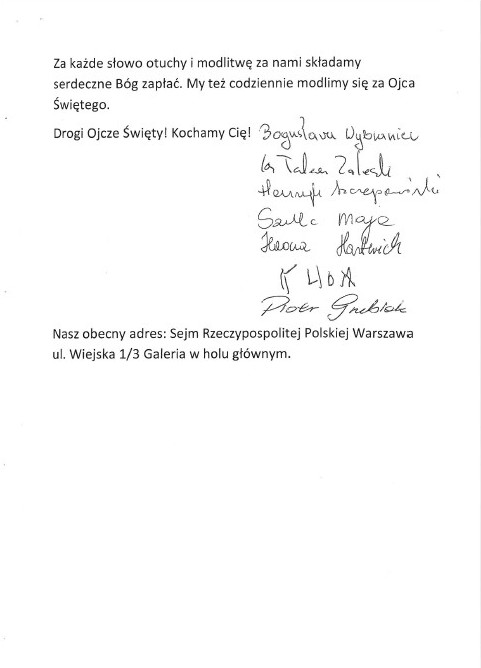 Za każde słowo otuchy i modlitwę za nami składamy
serdeczne Bóg zapłać. My też codziennie modlimy się za Ojca
Świętego.
Drogi Ojcze Święty! Kochamy Cię! Bogusława
Henryk Szczepański
Maja
Iwona Hartwich
Piotr
Nasz obecny adres: Sejm Rzeczypospolitej Polskiej Warszawa
ul. Wiejska 1/3 Galeria w holu głównym.